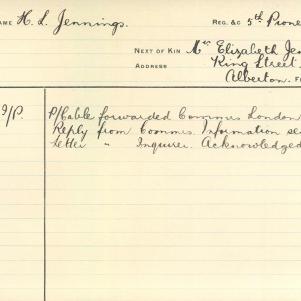 NAME H. L. Jennings. REG. &C 5th Pione
NEXT OF KIN Mrs Elizabeth Je
ADDRESS King Street,
Alberton.
9/P. P/Cable forwarded Commis London
Reply from Commis. Information se
Letter " Inquirer. Acknowledged